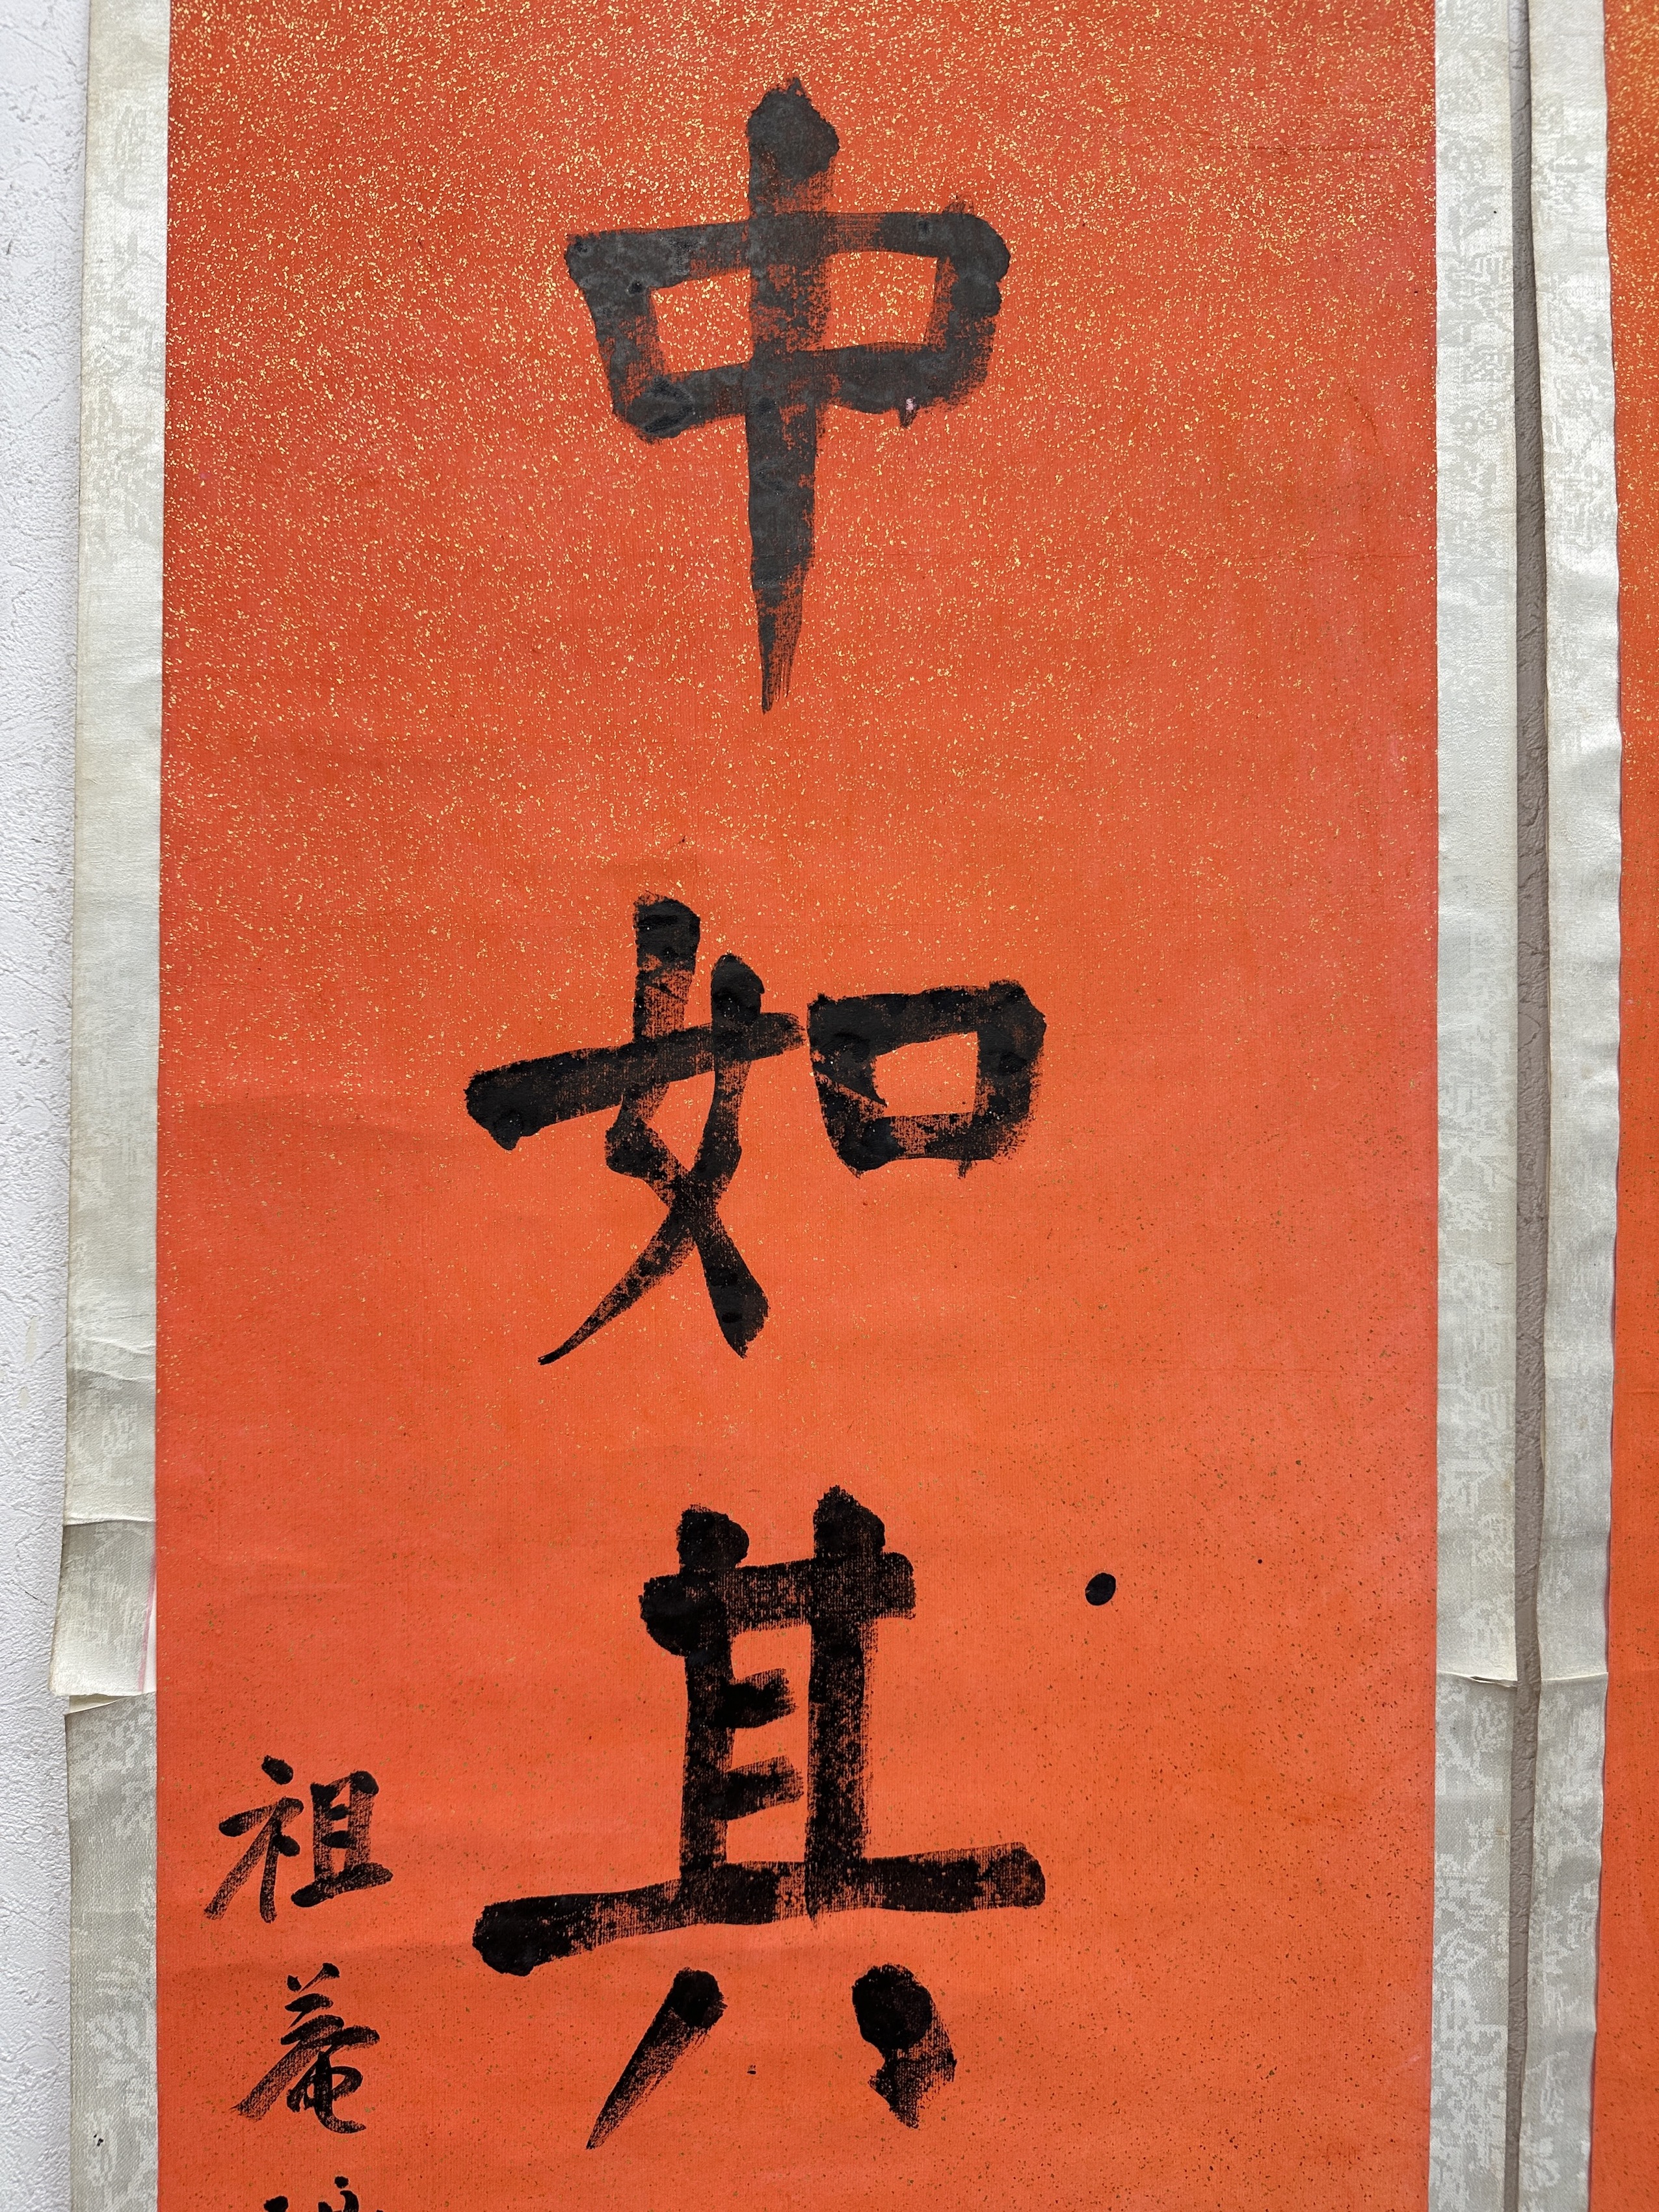 中如其
祖菴